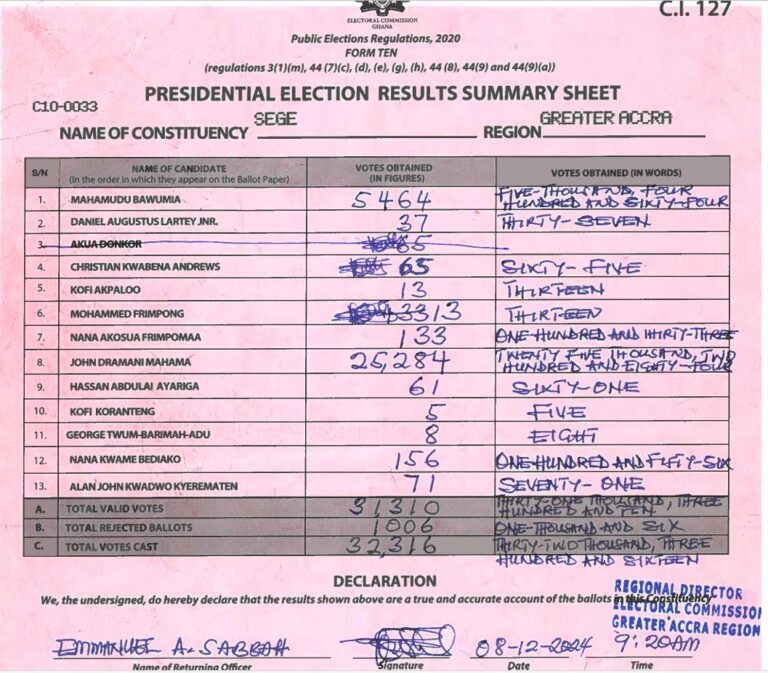 C.I. 127
ELECTORAL COMMISSION
GHANA
Public Elections Regulations, 2020
FORM TEN
(regulations 3(1)(m), 44 (7)(c), (d), (e), (g), (h), 44 (8), 44(9) and 44(9)(a))
PRESIDENTIAL ELECTION RESULTS SUMMARY SHEET
C10-0033
NAME OF CONSTITUENCY SEGE REGION GREATER ACCRA
S/N NAME OF CANDIDATE (In the order in which they appear on the Ballot Paper) VOTES OBTAINED (IN FIGURES) VOTES OBTAINED (IN WORDS)
1. MAHAMUDU BAWUMIA 5464 FIVE-THOUSAND, FOUR HUNDRED AND SIXTY-FOUR
2. DANIEL AUGUSTUS LARTEY JNR. 37 THIRTY-SEVEN
3. AKUA DONKOR 65
4. CHRISTIAN KWABENA ANDREWS 65 SIXTY-FIVE
5. KOFI AKPALOO 13 THIRTEEN
6. MOHAMMED FRIMPONG 13 THIRTEEN
7. NANA AKOSUA FRIMPOMAA 133 ONE-HUNDRED AND THIRTY-THREE
8. JOHN DRAMANI MAHAMA 25,284 TWENTY FIVE THOUSAND, TWO HUNDRED AND EIGHTY-FOUR
9. HASSAN ABDULAI AYARIGA 61 SIXTY-ONE
10. KOFI KORANTENG 5 FIVE
11. GEORGE TWUM-BARIMAH-ADU 8 EIGHT
12. NANA KWAME BEDIAKO 156 ONE-HUNDRED AND FIFTY-SIX
13. ALAN JOHN KWADWO KYEREMATEN 71 SEVENTY-ONE
A. TOTAL VALID VOTES 31,310 THIRTY-ONE THOUSAND, THREE HUNDRED AND TEN
B. TOTAL REJECTED BALLOTS 1006 ONE-THOUSAND AND SIX
C. TOTAL VOTES CAST 32,316 THIRTY-TWO THOUSAND, THREE HUNDRED AND SIXTEEN
DECLARATION
We, the undersigned, do hereby declare that the results shown above are a true and accurate account of the ballots in this Constituency
REGIONAL DIRECTOR
ELECTORAL COMMISSION
GREATER ACCRA REGION
EMMANUEL A. SABBAH 08-12-2024 9:20AM
Name of Returning Officer Signature Date Time